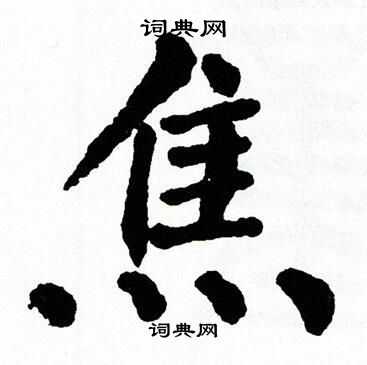 词典网
焦
词典网